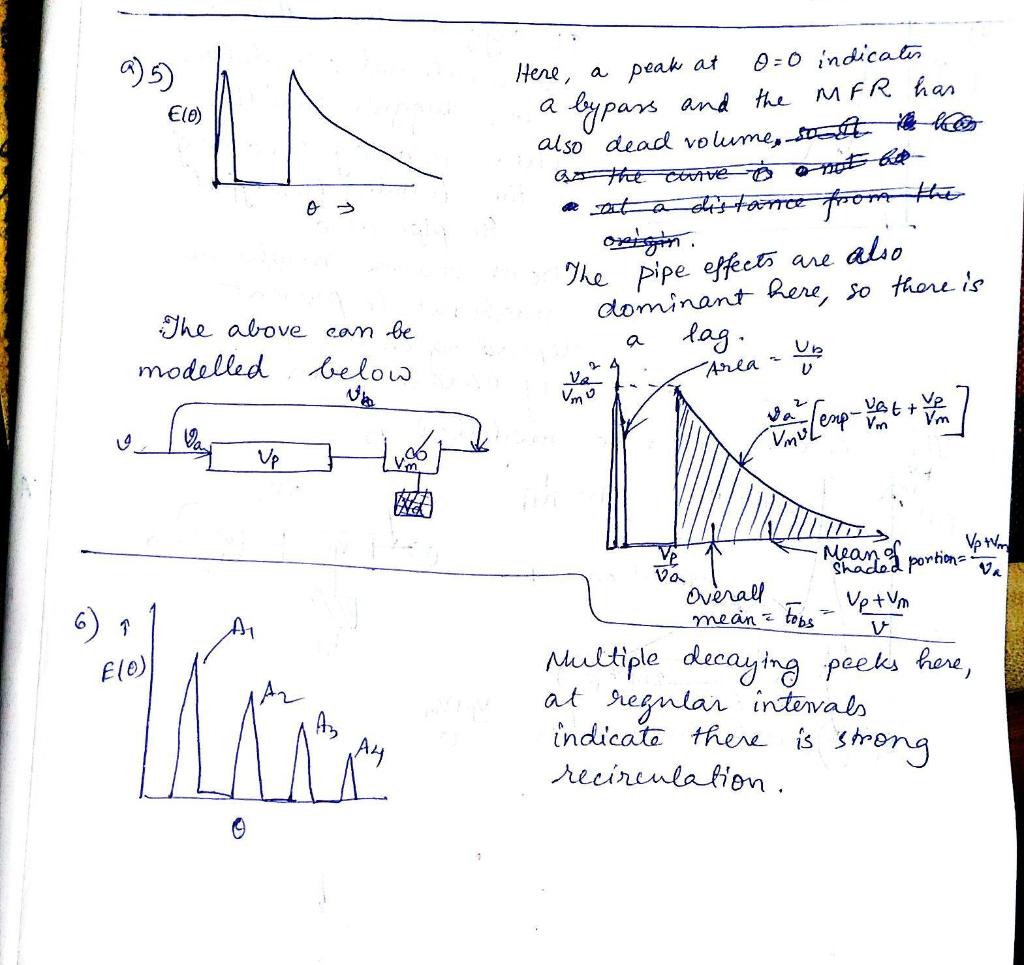 a) 5)
E(θ)
θ →
Here, a peak at θ=0 indicates
a bypass and the MFR has
also dead volume,
as the curve is not
at a distance from the
origin.
The pipe effects are also
dominant here, so there is
a lag.
The above can be
modelled below
v_b
v
v_a
V_p
V_m
V_d
v_a²/V_m v
Area = v_b/v
v_a²/V_m v [exp - v_a/V_m t + V_p/V_m]
V_p/v_a
Mean of
shaded portion = V_p+V_m/v_a
Overall
mean = t̄_obs = V_p+V_m/v
6) ↑
E(θ)
A1
A2
A3
A4
θ
Multiple decaying peeks here,
at regular intervals
indicate there is strong
recirculation.